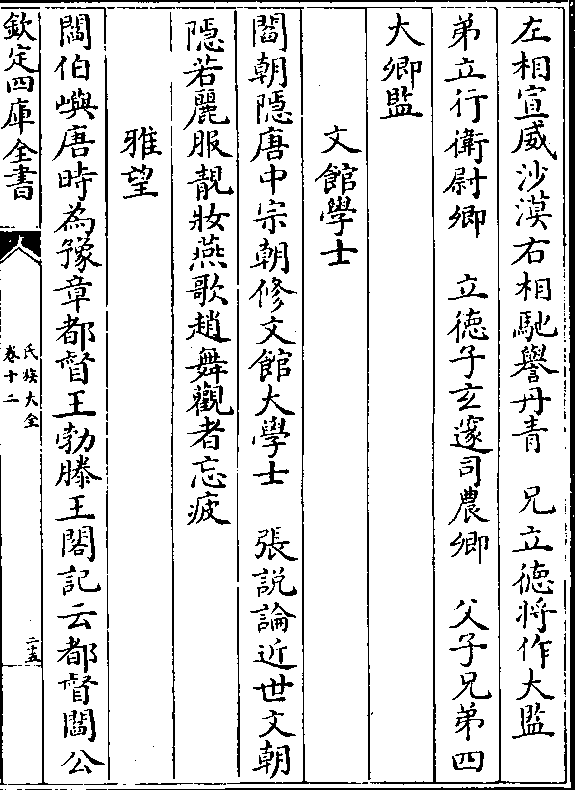 左相宣威沙漠右相馳譽丹青　兄立德將作大監
弟立行衛尉卿　立德子玄邃司農卿　父子兄弟四
大卿監
文館學士
閻朝隠唐中宗朝修文館大學士　張説論近世文朝
隠若麗服靚妝燕歌趙舞觀者忘疲
雅望
閻伯嶼唐時為豫章都督王勃滕王閣記云都督閻公
欽定四庫全書
氏族大全
卷十二
二十五